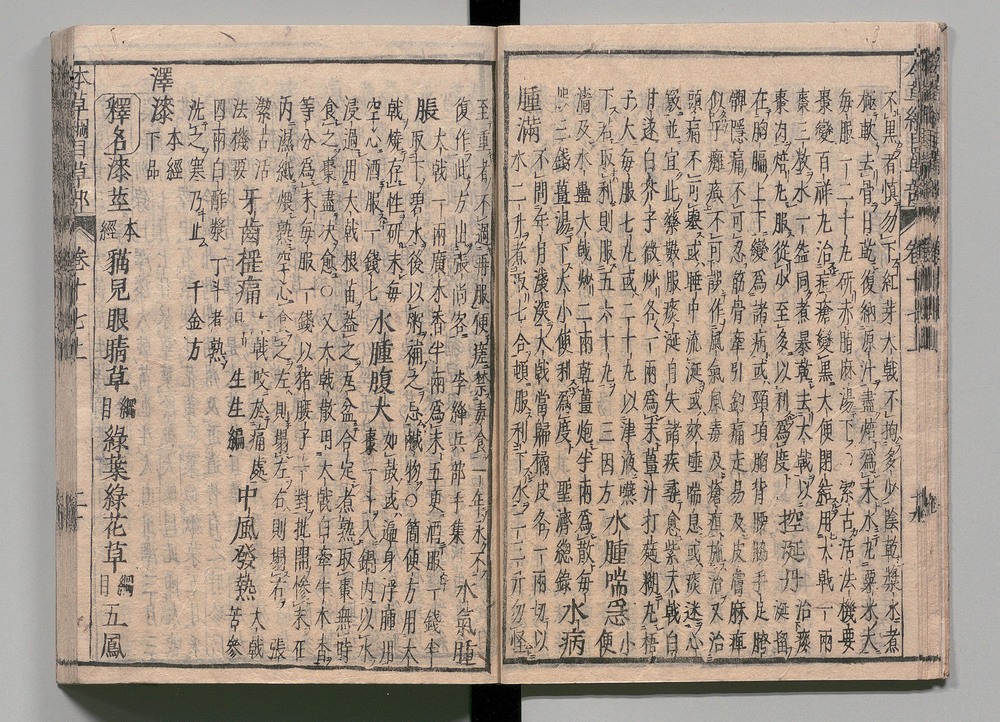 本草綱目草部 卷十七上
不黑者慎勿下 紅芽大戟不拘多少陰乾漿水煮
極軟去骨日乾復納原汁盡焙為末水丸粟米大
每服一二十丸研赤脂麻湯下○潔古活法機要
棗變百祥丸治斑瘡變黑大便閉結用大戟一兩
棗三枚水一盌同煮暴乾去大戟以
棗肉焙丸服從少至多以利為度 控涎丹 治痰涎留
在胸膈上下變為諸病或頸項胸背腰脇手足胯
髀隱痛不可忍筋骨牽引釣痛走易及皮膚麻痺
似乎癱瘓不可誤作風氣風毒及瘡疽施治又治
頭痛不可舉或睡中流涎或欬唾喘息或痰迷心
竅並宜此藥數服痰涎自失諸疾尋愈紫大戟白
甘遂白芥子微炒各一兩為末薑汁打麪糊丸梧
子大每服七丸或二十丸以津液嚥
下若取利則服五六十丸 三因方 水腫喘急 小便
濇及水蠱大戟炒二兩乾薑炮半兩為散每
服三錢薑湯下大小便利為度 聖濟總錄 水病
腫滿 不問年月淺深大戟當歸橘皮各一兩切以
水二升煮取七合頓服利下水二三斗勿怪
至重者不過再服便瘥禁毒食一年水下不
復作此方出張尚客 李絳兵部手集 水氣腫
脹 大戟一兩廣木香半兩為末五更酒服一錢半
取下碧水後以粥補之忌鹹物○簡便方用大
戟燒存性研末每
空心酒服一錢七 水腫腹大 如鼓或遍身浮腫用
棗一斗入鍋內以水
浸過用大戟根苗蓋之瓦盆合定煮熟取棗無時
食之棗盡決愈○又大戟散用大戟白牽牛木香
等分為末每服一錢以猪腰子一對批開摻末在
內濕紙煨熟空心食之左則塌左右則塌右 張
潔古活法機要 牙齒搖痛 大戟咬於痛處良 生生編 中風發熱 大戟苦參
四兩白酢漿一斗煮熟
洗之寒乃止 千金方
澤漆 本經下品
釋名 漆莖 本經 貓兒眼睛草 綱目 綠葉綠花草 綱目 五鳳
本草綱目草部 卷十七上